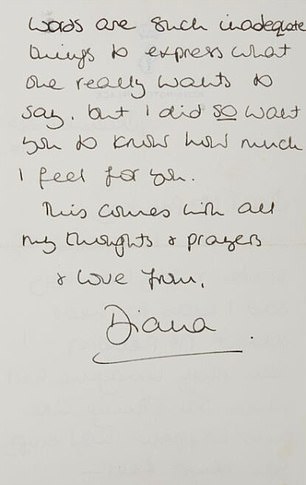 words are such inadequate
things to express what
one really wants to
say, but I did so want
you to know how much
I feel for you.
This comes with all
my thoughts & prayers
& love from,
Diana